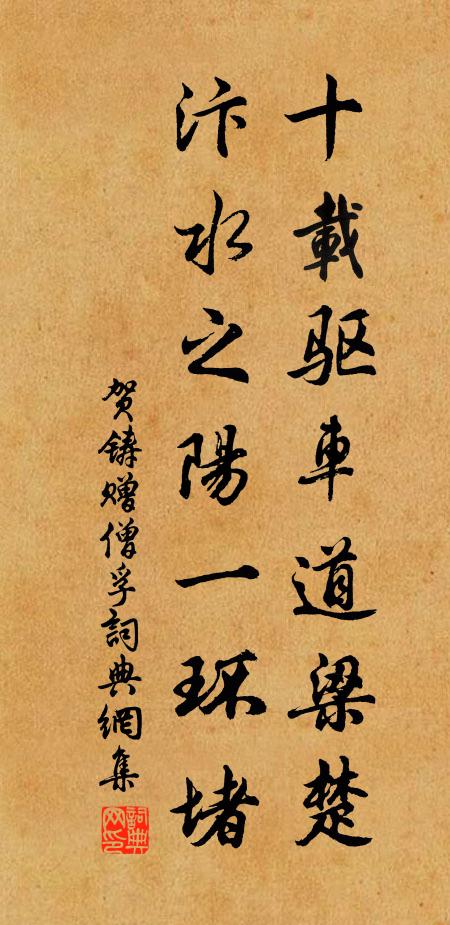 十載驱车道梁楚
汴水之陽一环堵
贺鑄赠僧孚詞典網集
詞典网印